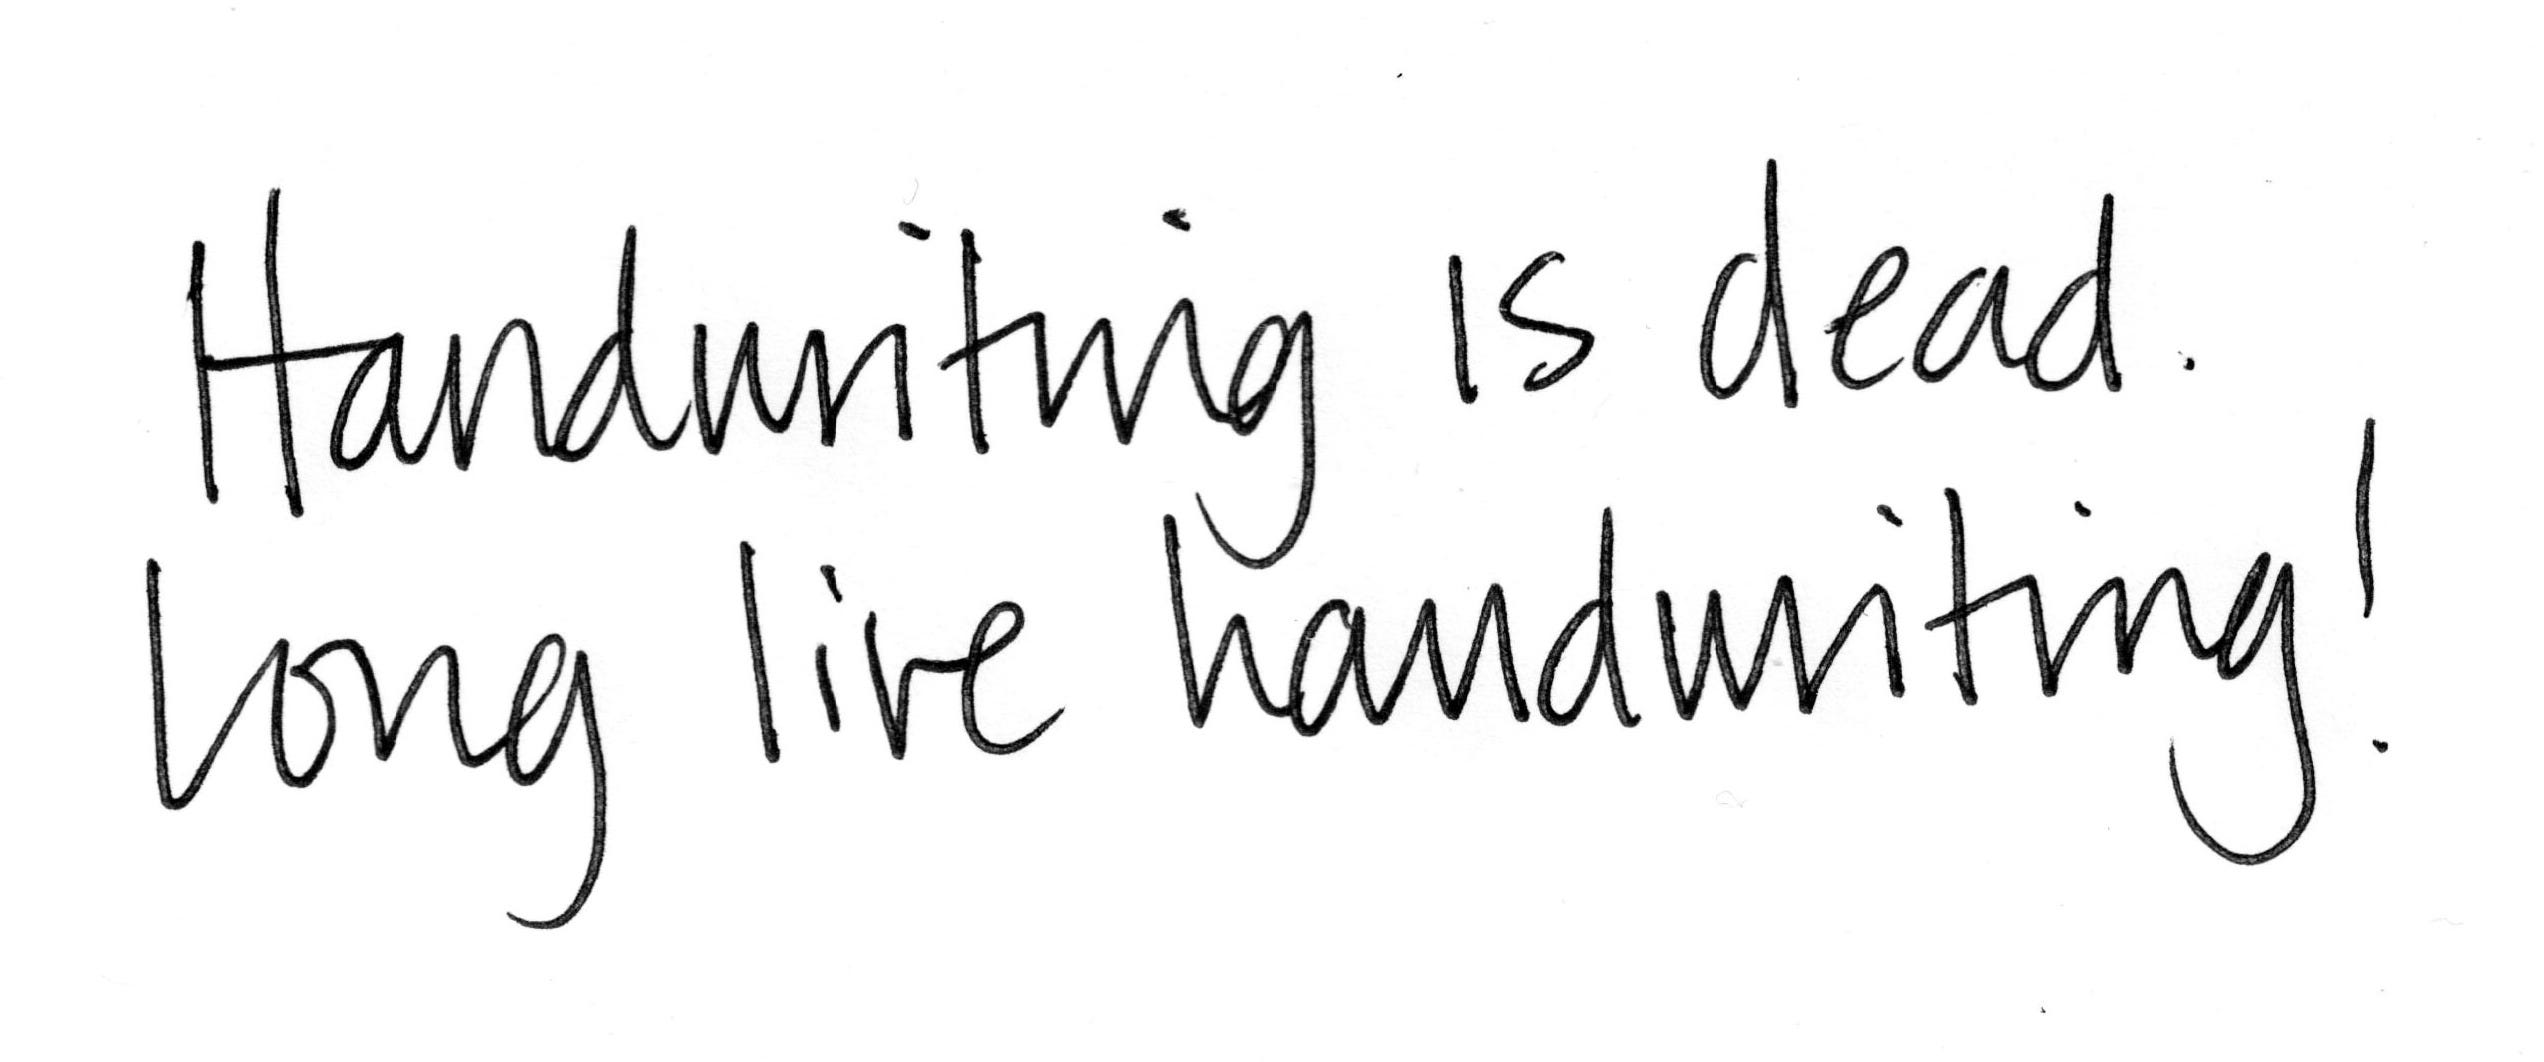 Handwriting is dead.
Long live handwriting!